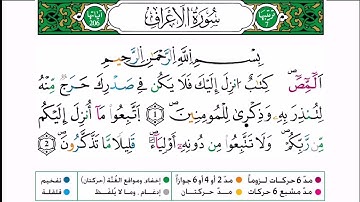 سُورَةُ الْأَعْرَافِ
ترتيبها 7
آياتها 206
بِسْمِ اللَّهِ الرَّحْمَٰنِ الرَّحِيمِ
الٓمٓصٓ ۝ كِتَٰبٌ أُنزِلَ إِلَيْكَ فَلَا يَكُن فِي صَدْرِكَ حَرَجٌ مِّنْهُ
لِتُنذِرَ بِهِۦ وَذِكْرَىٰ لِلْمُؤْمِنِينَ 1 اتَّبِعُوا مَا أُنزِلَ إِلَيْكُم
مِّن رَّبِّكُمْ وَلَا تَتَّبِعُوا مِن دُونِهِۦ أَوْلِيَاءَ قَلِيلًا مَّا تَذَكَّرُونَ 2
مدّ 6 حركات لزوماً مدّ 2 أو 4 أو 6 جوازاً إخفاء، ومواقع الغُنَّة (حركتان) تفخيم
مدّ مشبع 6 حركات مدّ حركتان إدغام، وما لا يُلفظ قلقلة